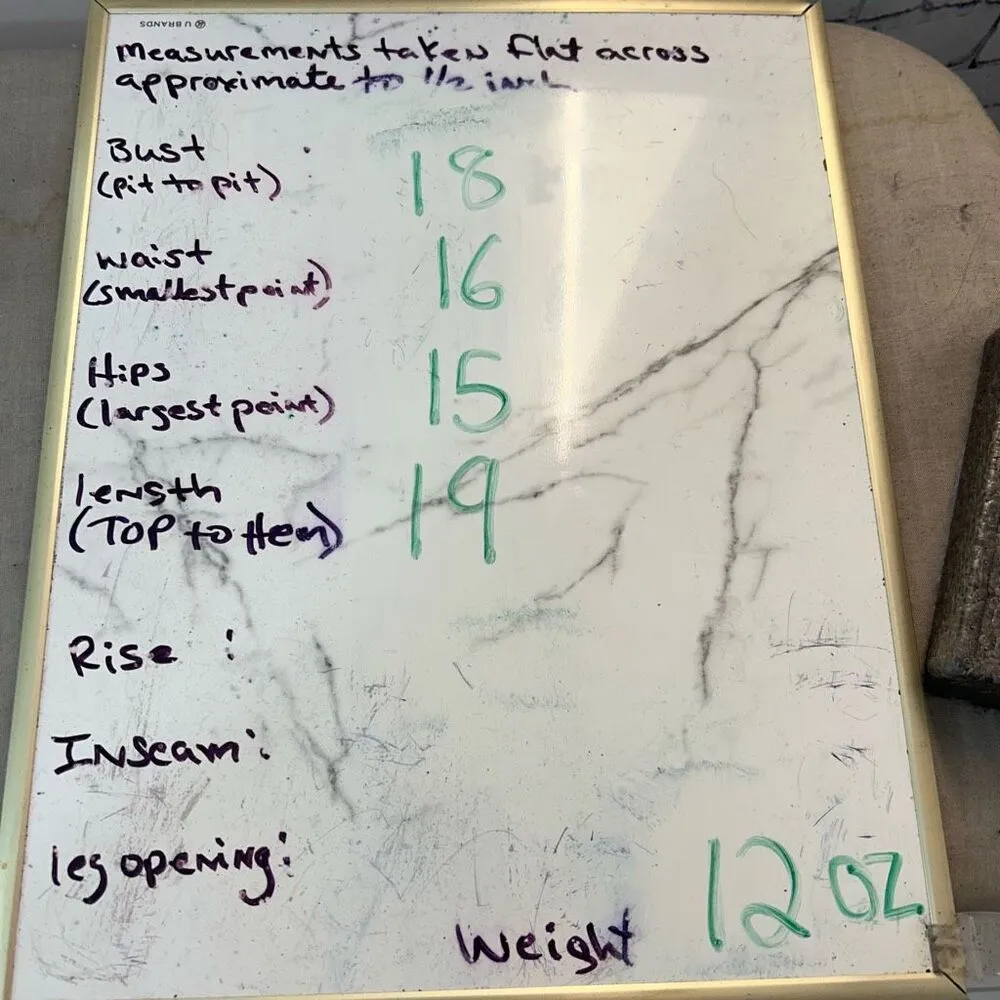 U BRANDS
Measurements taken flat across
approximate to 1/2 inch
Bust
(pit to pit) 18
waist
(smallest point) 16
Hips
(largest point) 15
length
(TOP to Hem) 19
Rise :
Inseam:
leg opening:
Weight 12 oz